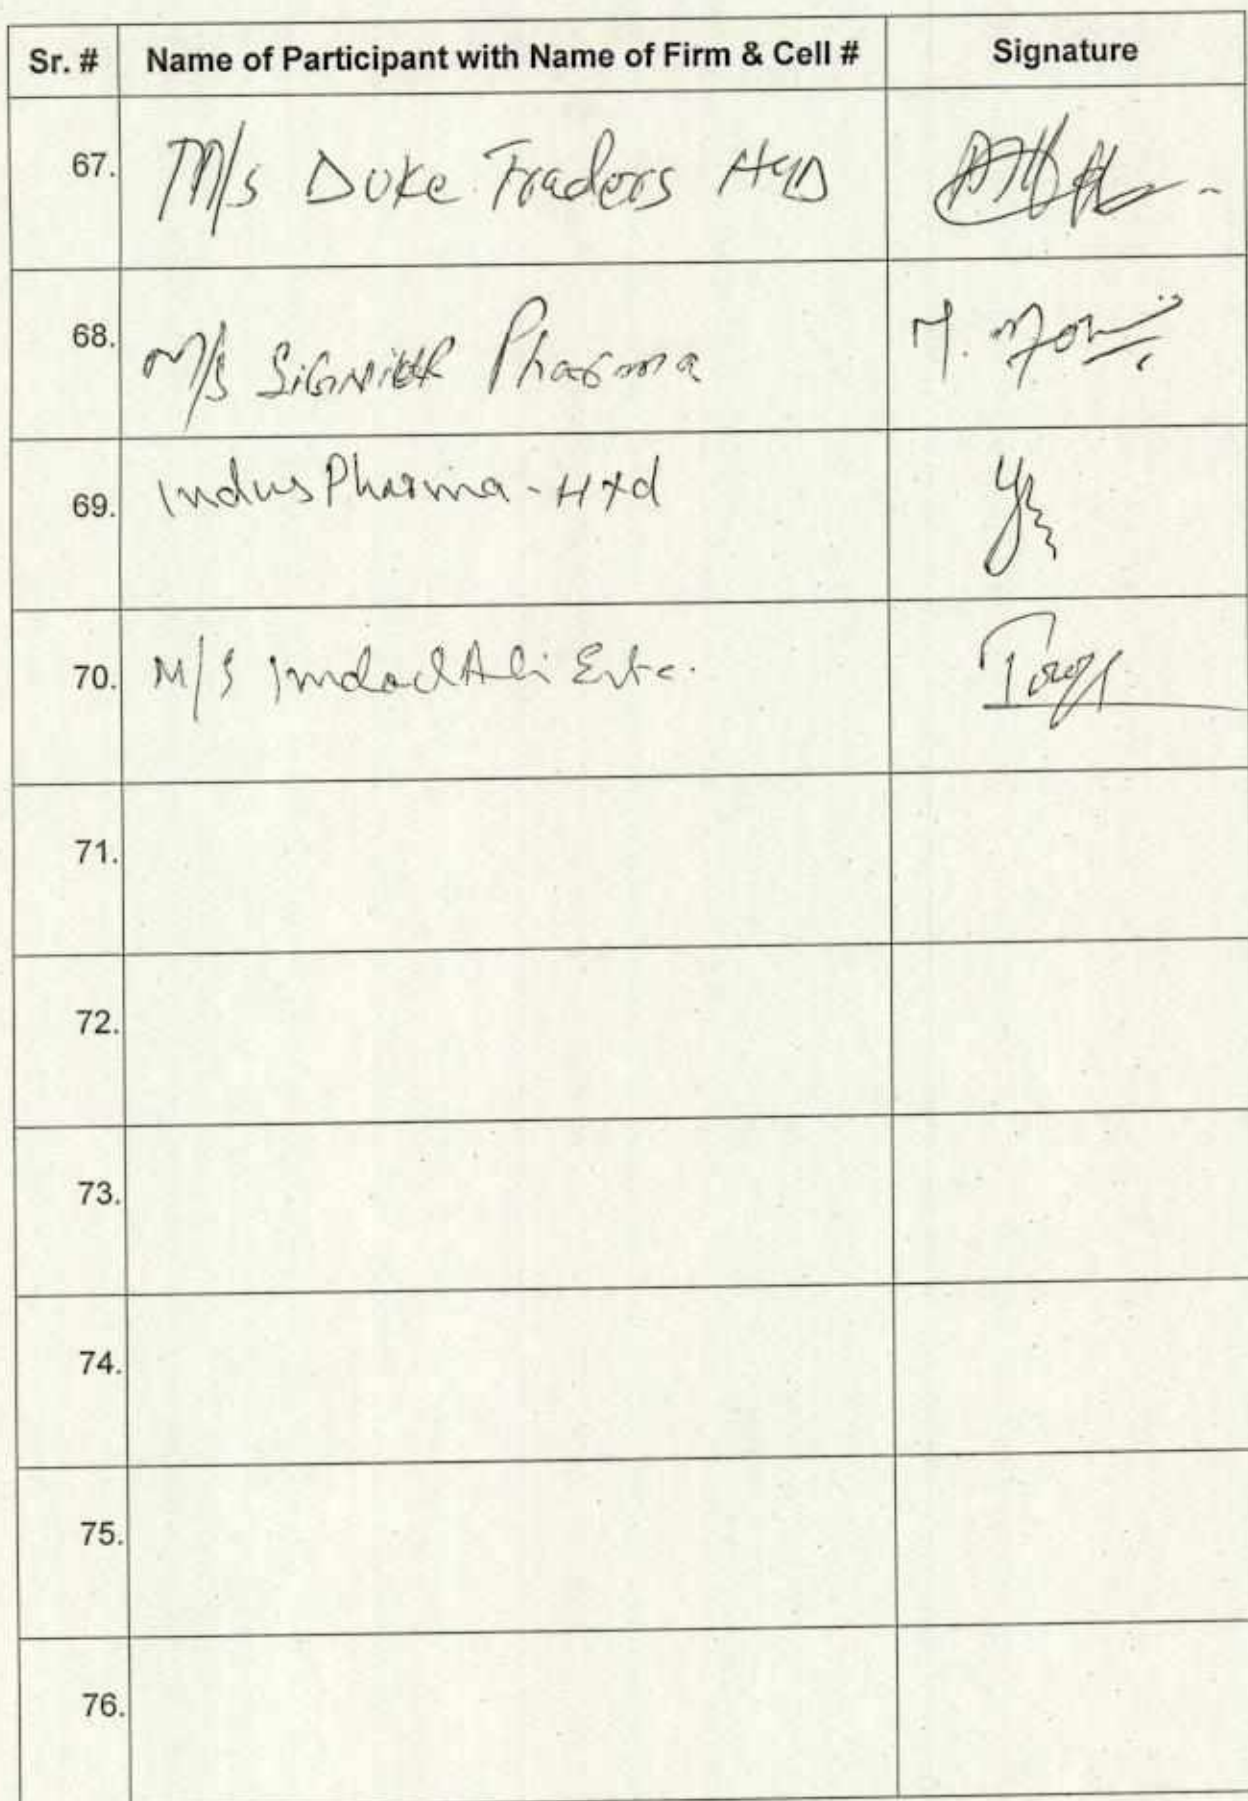 Sr. # Name of Participant with Name of Firm & Cell # Signature
67. M/s Duke Traders HyD
68. M/s Pharma M.
69. Indus Pharma - Hyd
70. M/S Imdad Ali Ente.
71.
72.
73.
74.
75.
76.